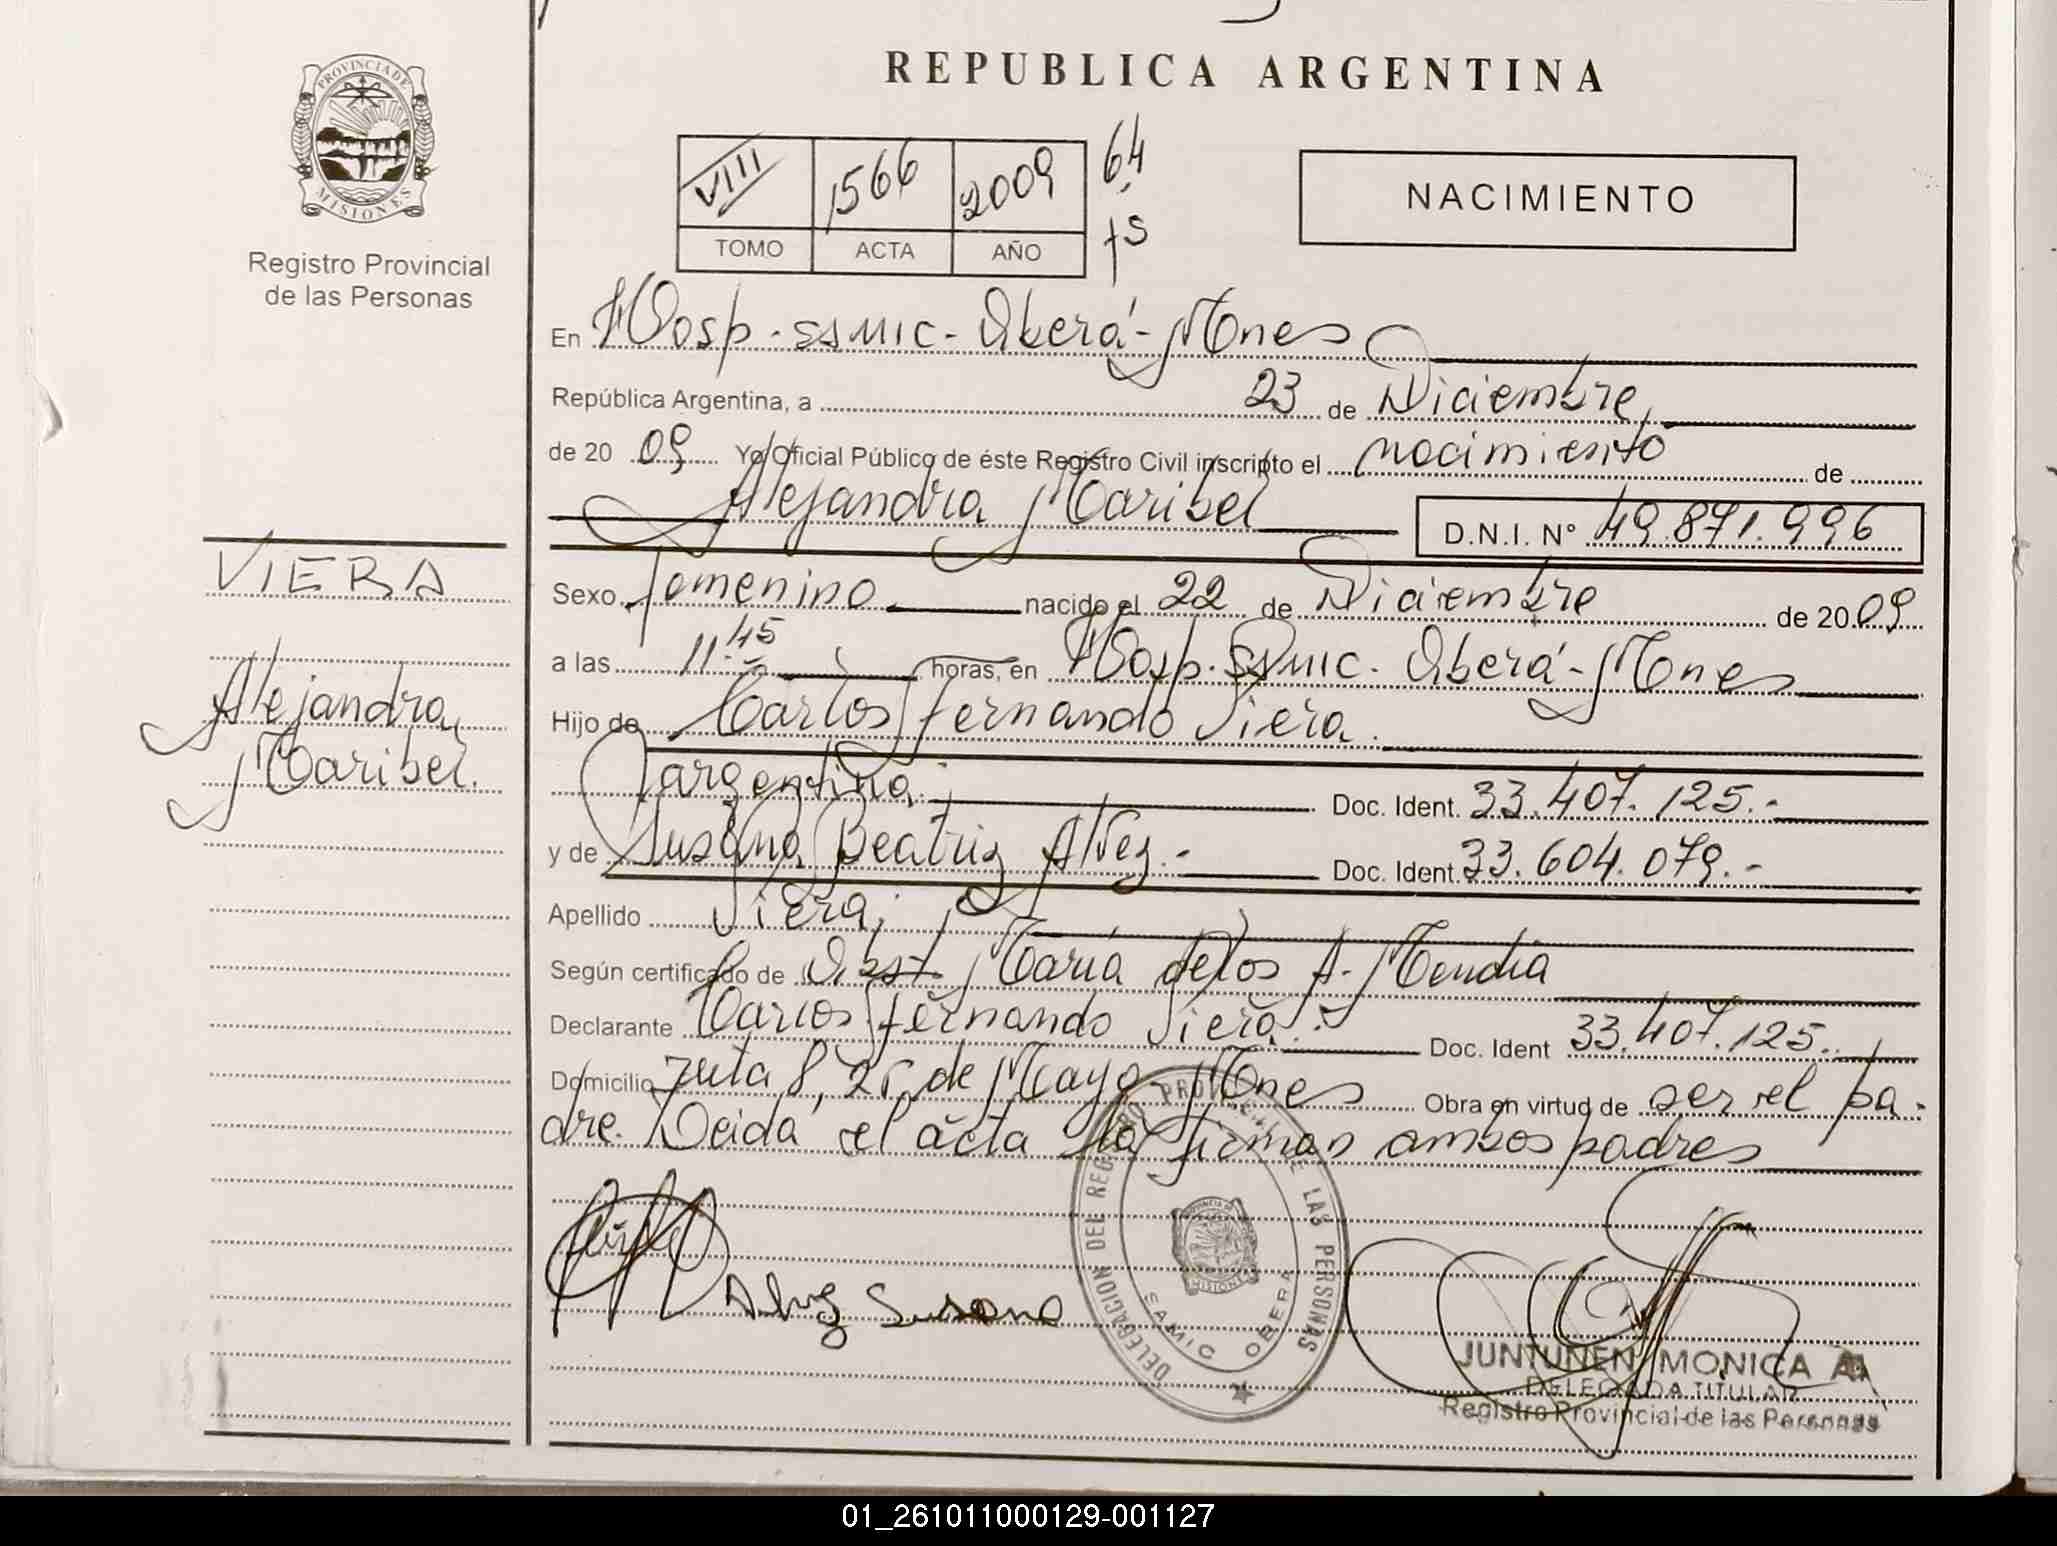 REPUBLICA ARGENTINA
PROVINCIA DE
MISIONES
Registro Provincial
de las Personas
VIII 1566 2009 64 fs
TOMO ACTA AÑO
NACIMIENTO
En Hosp. SSMIC - Oberá - Mnes
República Argentina, a 23 de Diciembre
de 20 09 Yo Oficial Público de éste Registro Civil inscripto el nacimiento de
Alejandra Maribel D.N.I. Nº 49.871.996
VIERA
Alejandra
Maribel.
Sexo femenino nacido el 22 de Diciembre de 20 09
a las 11.45 horas, en Hosp. SSMIC. Oberá - Mnes
Hijo de Carlos Fernando Viera.
argentina Doc. Ident. 33.407.125.-
y de Susana Beatriz Alvez.- Doc. Ident. 33.604.079.-
Apellido Viera
Según certificado de Obst. María de los A. Mendia
Declarante Carlos Fernando Viera. Doc. Ident 33.407.125.
Domicilio ruta 8, 25 de Mayo - Mnes Obra en virtud de ser el pa-
dre. Leida el acta la firman ambos padres
Alvez Susana
DELEGACION DEL REGISTRO PROVINCIAL DE LAS PERSONAS
SAMIC OBERA
MISIONES
JUNTUNEN MONICA A.
DELEGADA TITULAR
Registro Provincial de las Personas
01_261011000129-001127